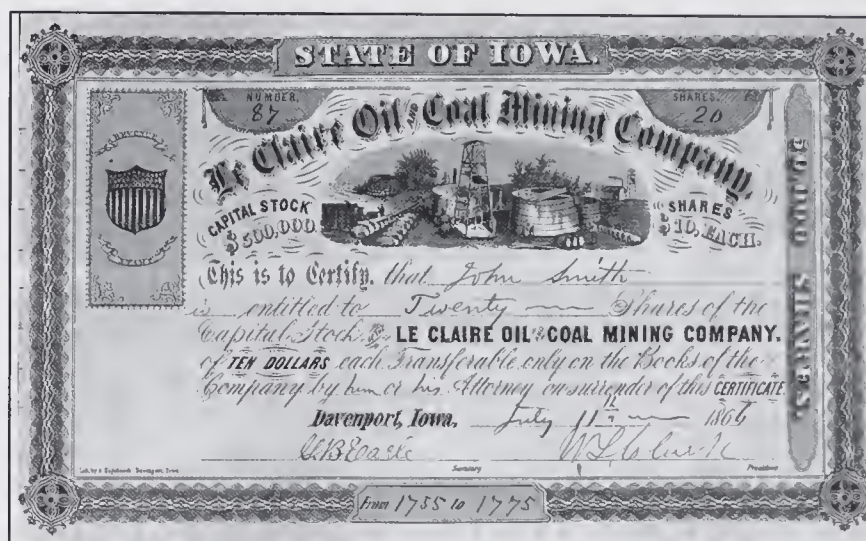 STATE OF IOWA.
NUMBER,
87
SHARES,
20
Le Claire Oil AND Coal Mining Company.
REVENUE
CAPITAL STOCK
$500,000.
SHARES
$10, EACH.
50,000 SHARES.
This is to Certify, that John Smith
is entitled to Twenty Shares of the
Capital Stock of LE CLAIRE OIL AND COAL MINING COMPANY.
of TEN DOLLARS each Transferable only on the Books of the
Company by him or his Attorney on surrender of this CERTIFICATE
Davenport, Iowa, July 11th 1865
Secretary
President
Davenport, Iowa
From 1755 to 1775